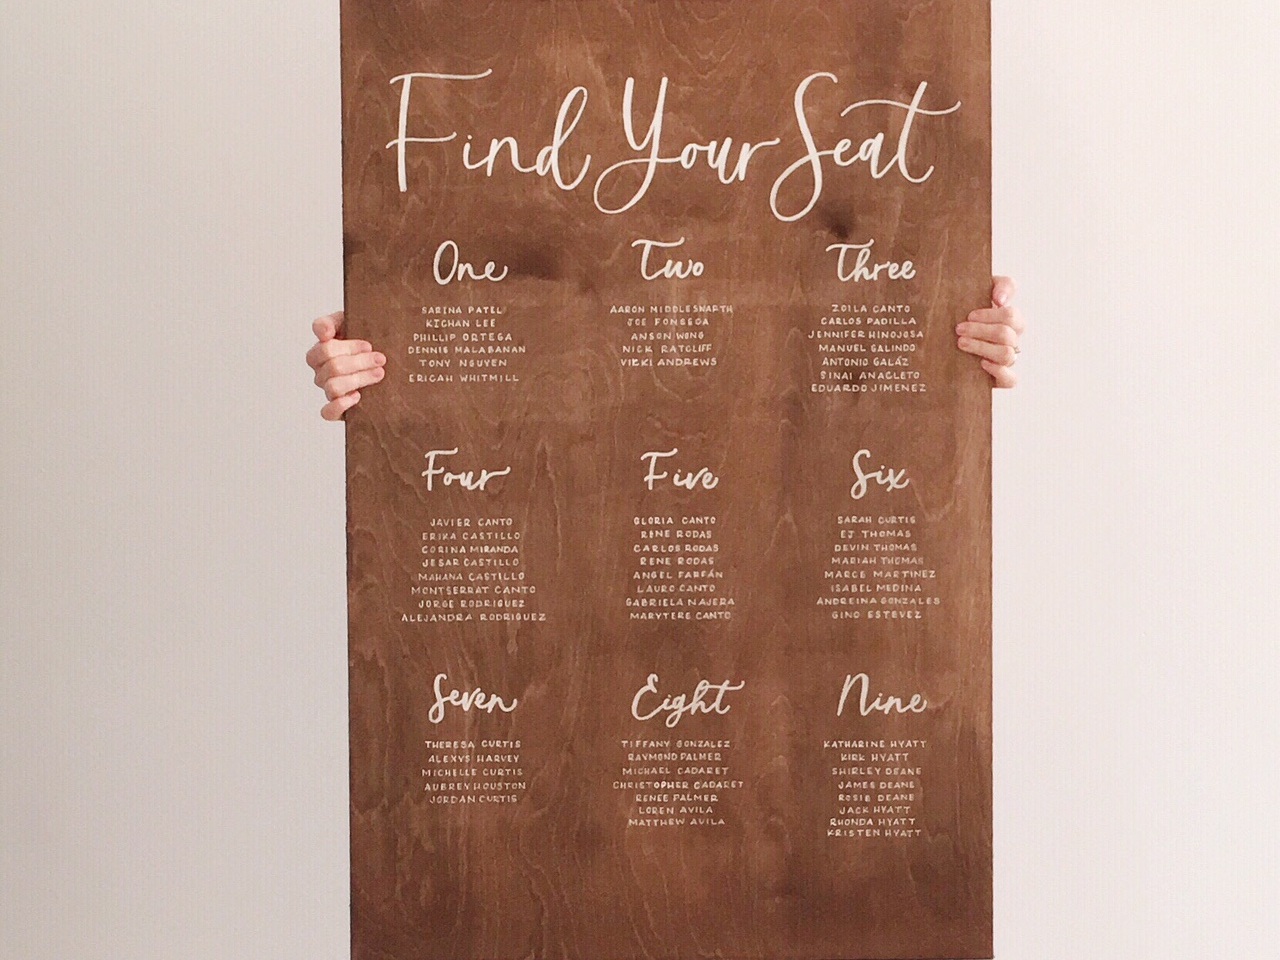 Find Your Seat
One
SABINA PATEL
KICHAN LEE
PHILLIP ORTEGA
DENNIS MALABANAN
TONY NGUYEN
ERICAH WHITMILL
Two
AARON MIDDLESWARTH
JOE FONSECA
ANSON WONG
NICK RATCLIFF
VIKKI ANDREWS
Three
ZOILA CANTO
CARLOS PADILLA
JENNIFER HINOJOSA
MANUEL GALINDO
ANTONIO GALÁZ
SINAI ANACLETO
EDUARDO JIMENEZ
Four
JAVIER CANTO
ERIKA CASTILLO
CORINA MIRANDA
JESAR CASTILLO
MAHANA CASTILLO
MONTSERRAT CANTO
JORGE RODRIGUEZ
ALEJANDRA RODRIGUEZ
Five
GLORIA CANTO
RENE RODAS
CARLOS RODAS
RENE RODAS
ANGEL FARFÁN
LAURO CANTO
GABRIELA NAJERA
MARYTERE CANTO
Six
SARAH CURTIS
EJ THOMAS
DEVIN THOMAS
MARIAH THOMAS
MARCE MARTINEZ
ISABEL MEDINA
ANDREINA GONZALES
GINO ESTEVEZ
Seven
THERESA CURTIS
ALEXYS HARVEY
MICHELLE CURTIS
AUBREY HOUSTON
JORDAN CURTIS
Eight
TIFFANY GONZALEZ
RAYMOND PALMER
MICHAEL CADARET
CHRISTOPHER CADARET
RENEE PALMER
LOREN AVILA
MATTHEW AVILA
Nine
KATHARINE HYATT
KIRK HYATT
SHIRLEY DEANE
JAMES DEANE
ROSIE DEANE
JACK HYATT
RHONDA HYATT
KRISTEN HYATT